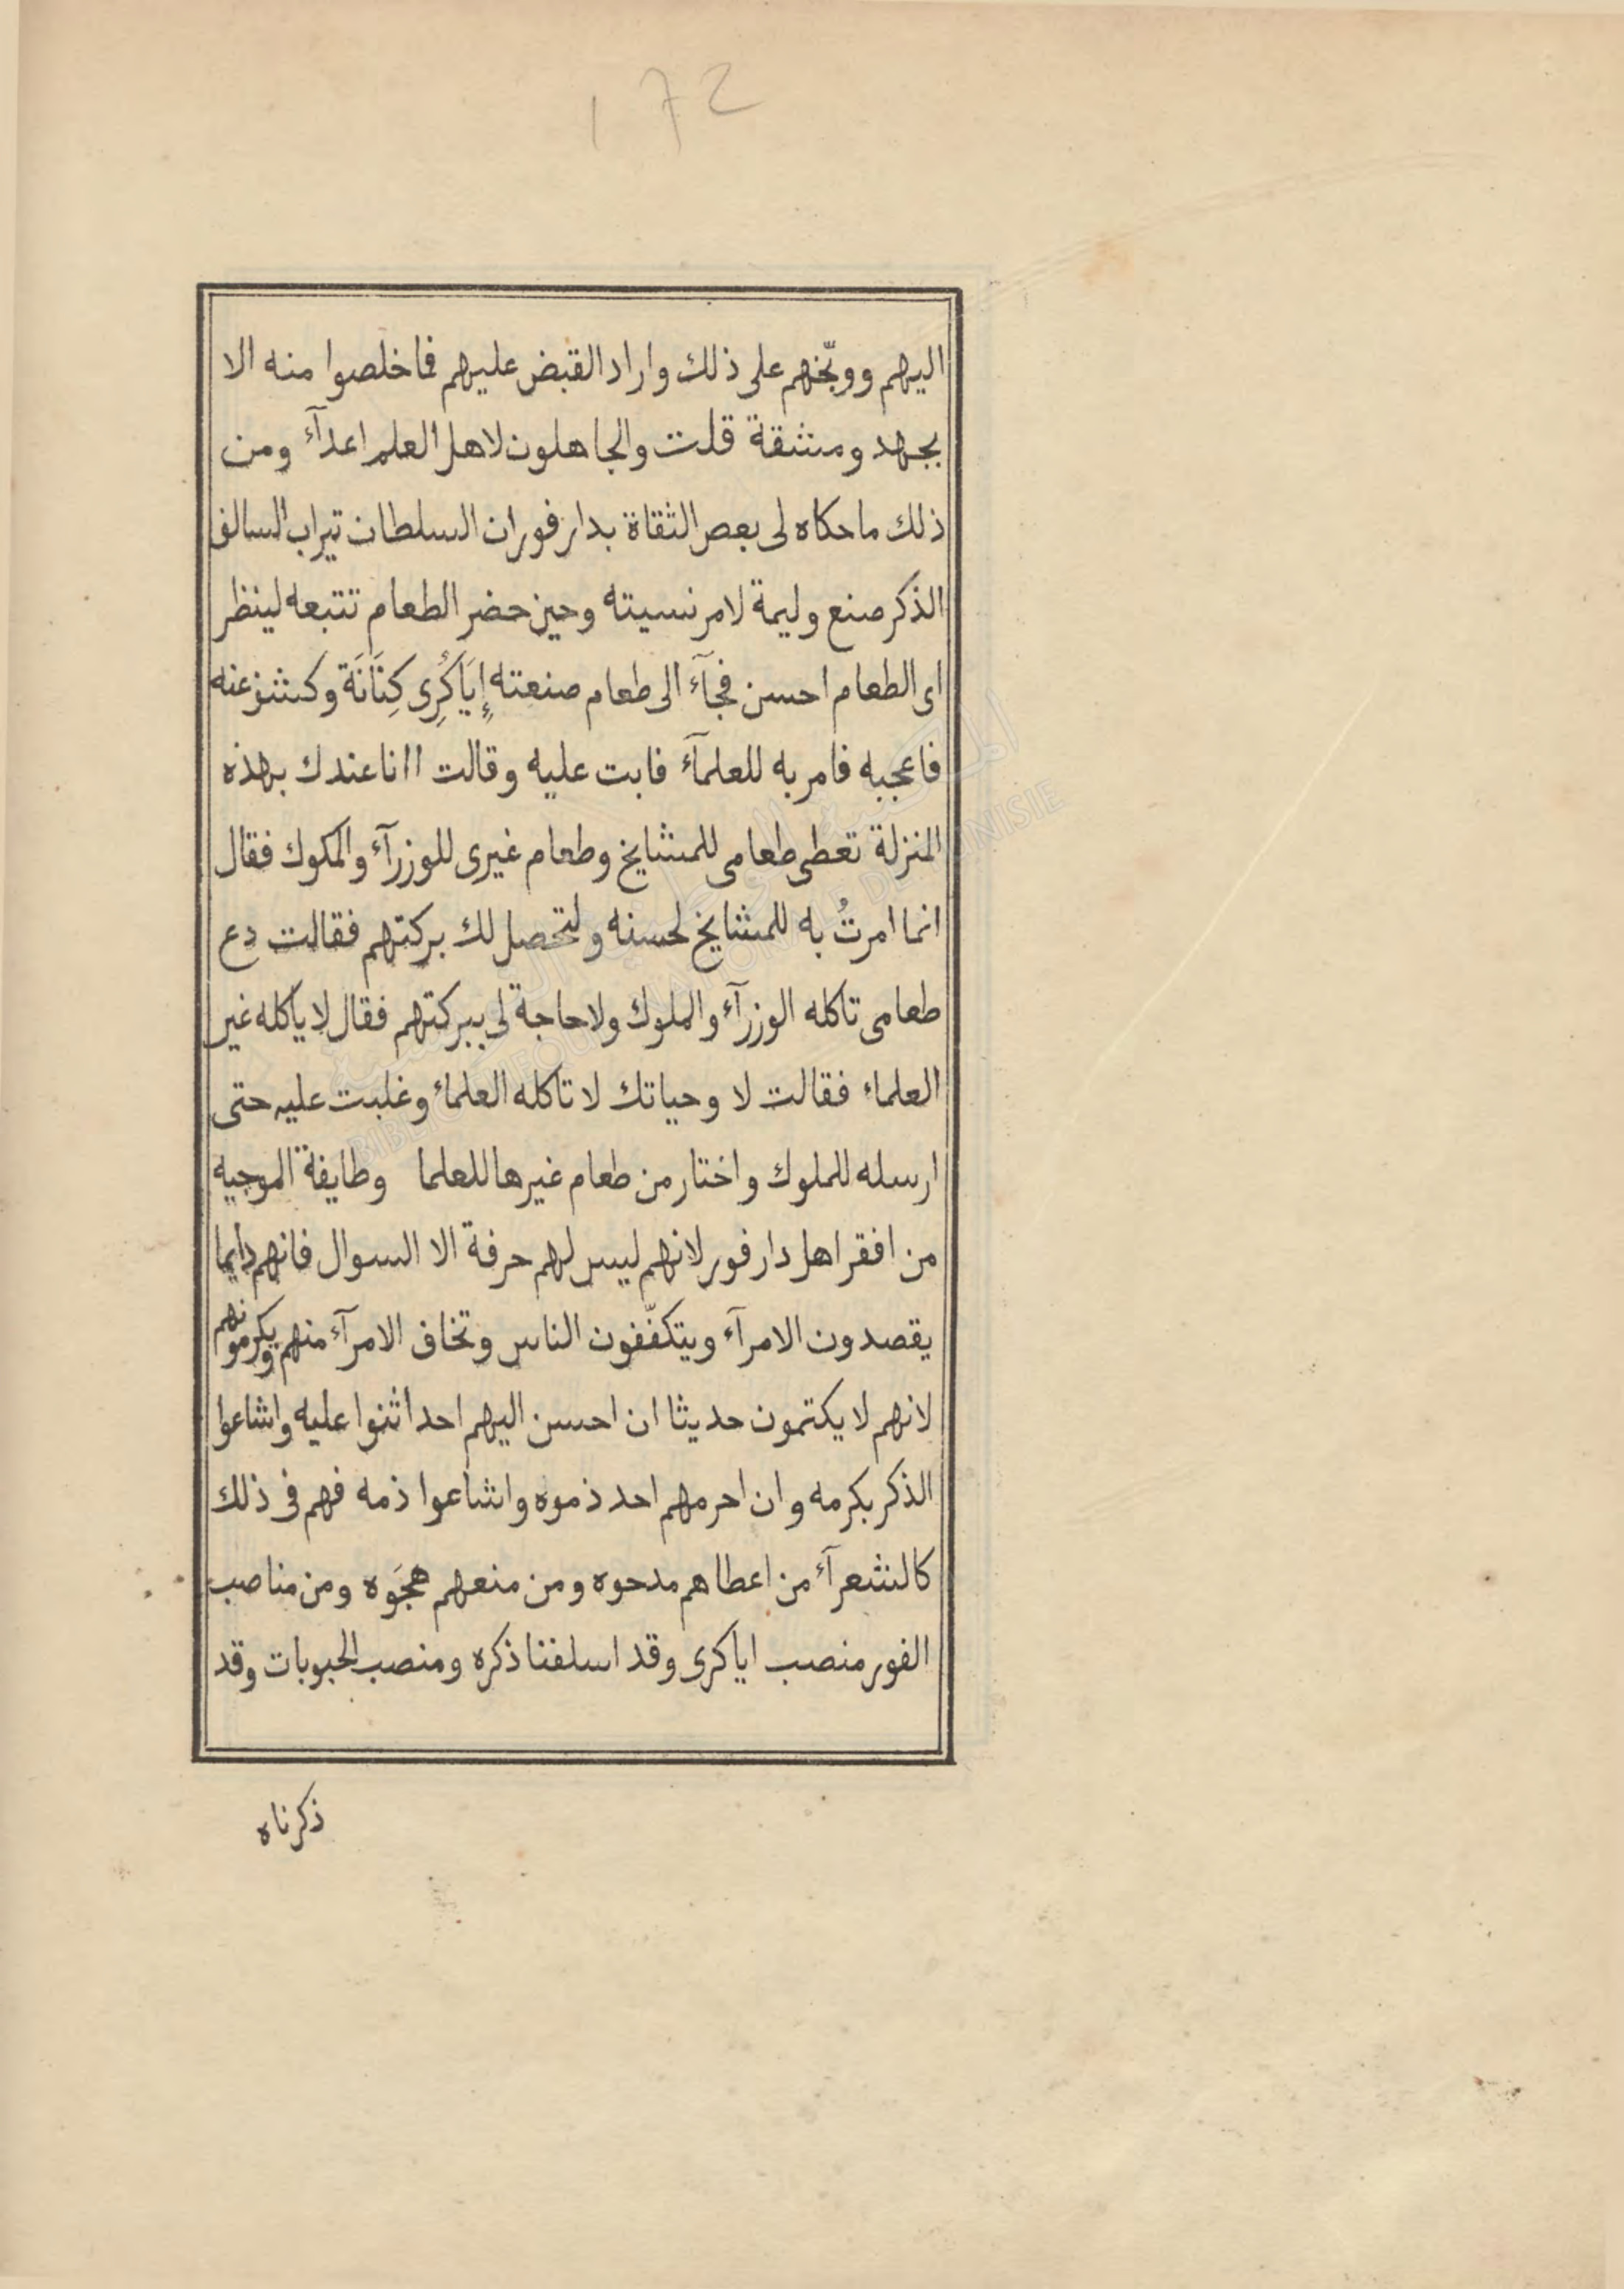 172
اليهم ووبّخهم على ذلك واراد القبض عليهم فاخلصوا منه الا
بجهد ومشقة قلت والجاهلون لاهل العلم اعدآء ومن
ذلك ما حكاه لى بعض الثقاة بدار فور ان السلطان تيراب السالف
الذكر صنع وليمة لامر نسيته وحين حضر الطعام تتبعه لينظر
اى الطعام احسن فجآء الى طعام صنعته إِيَاكُرِى كِنَانَة وكشف عنه
فاعجبه فامر به للعلمآء فابت عليه وقالت اانا عندك بهذه
المنزلة تعطى طعامى للمشايخ وطعام غيرى للوزرآء والمكوك فقال
انما امرتُ به للمشايخ لحسنه ولتحصل لك بركتهم فقالت دع
طعامى تاكله الوزرآء والملوك ولا حاجة لى ببركتهم فقال لا ياكله غير
العلماء فقالت لا وحياتك لا تاكله العلماء وغلبت عليه حتى
ارسله للملوك واختار من طعام غيرها للعلما وطايفة الموجيه
من افقر اهل دار فور لانهم ليس لهم حرفة الا السوال فانهم دايما
يقصدون الامرآء ويتكفّفون الناس وتخاف الامرآء منهم ويكرمونهم
لانهم لا يكتمون حديثا ان احسن اليهم احد اثنوا عليه واشاعوا
الذكر بكرمه وان احرمهم احد ذموه واشاعوا ذمه فهم فى ذلك
كالشعرآء من اعطاهم مدحوه ومن منعهم هجَوه ومن مناصب
الفور منصب اياكرى وقد اسلفنا ذكره ومنصب الحبوبات وقد
ذكرناه